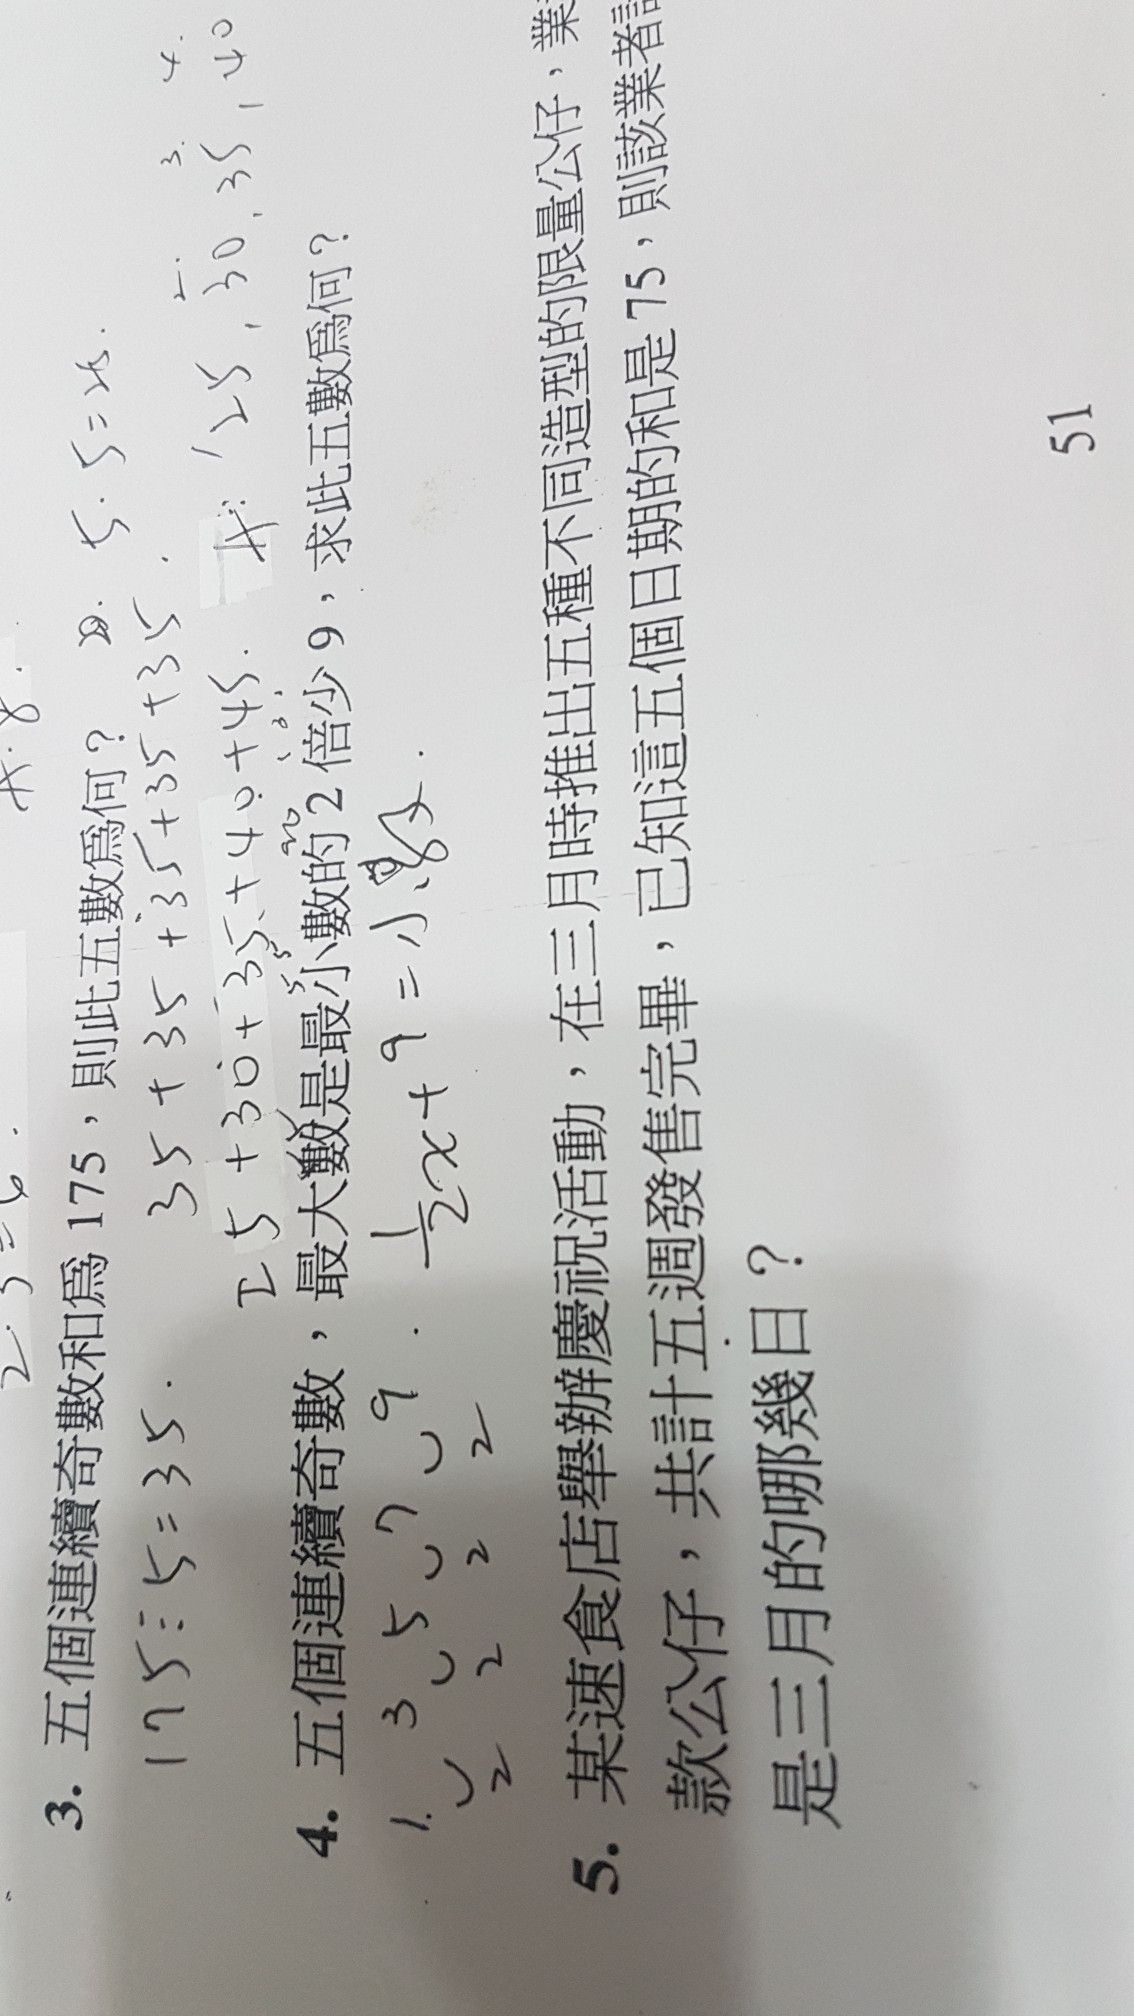 2.3=6.
A:8.
3. 五個連續奇數和為 175，則此五數為何？
5.5=25.
175÷5=35.
35+35+35+35+35.
25+30+35+40+45.
A: 25,30,35,40
4. 五個連續奇數，最大數是最小數的 2 倍少 9，求此五數為何？
1. 3 5 7 9.
2 2 2 2
½x+9=小數.
5. 某速食店舉辦慶祝活動，在三月時推出五種不同造型的限量公仔，業
款公仔，共計五週發售完畢，已知這五個日期的和是 75，則該業者
是三月的哪幾日？
51